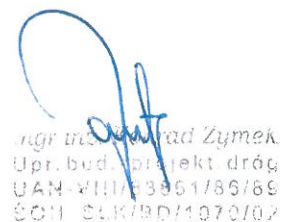 mgr inż. Konrad Zymek
Upr. bud. projekt. dróg
UAN-VIII/83861/86/89
ŚOII SLK/BD/1070/02